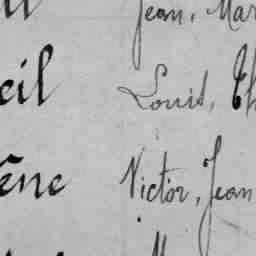 Jean, Mar
eil Louis, Th
ène Victor, Jean